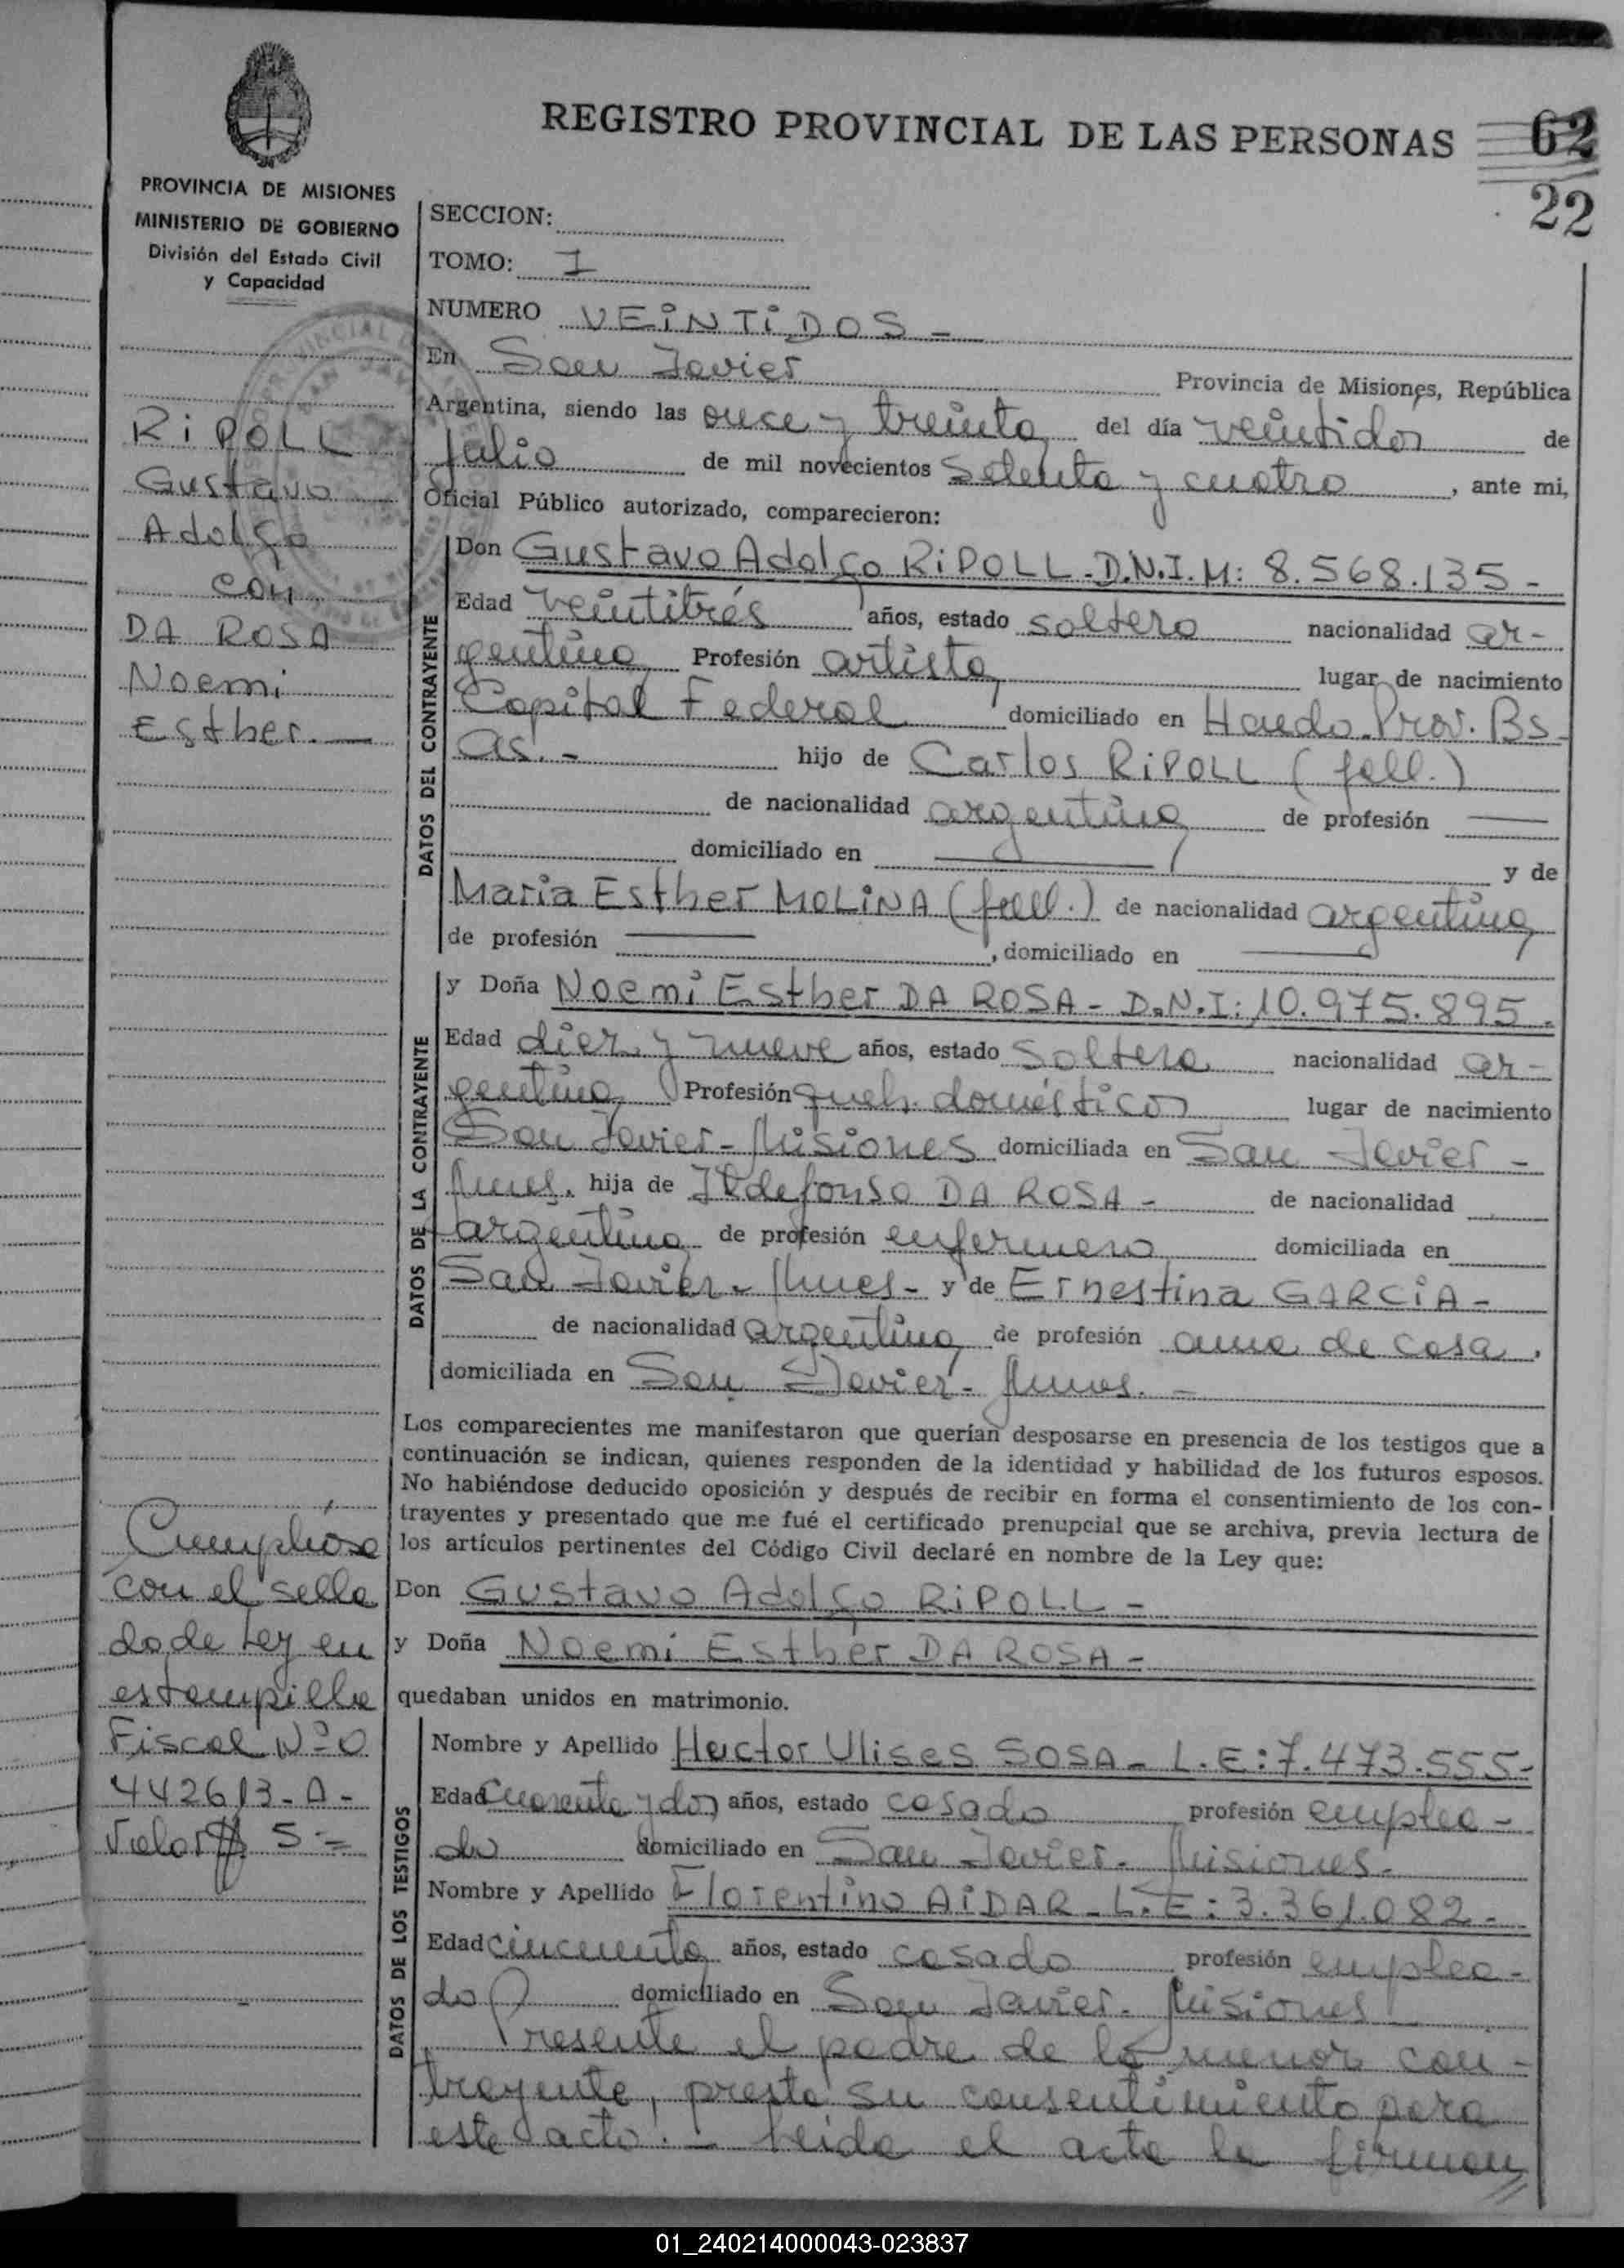 REGISTRO PROVINCIAL DE LAS PERSONAS
62
22
PROVINCIA DE MISIONES
MINISTERIO DE GOBIERNO
División del Estado Civil
y Capacidad
SECCION:
TOMO: I
NUMERO VEINTIDOS -
En San Javier Provincia de Misiones, República
Argentina, siendo las once y treinta del día veintidos de
Julio de mil novecientos setenta y cuatro, ante mi,
Oficial Público autorizado, comparecieron:
RIPOLL
Gustavo
Adolfo
con
DA ROSA
Noemi
Esther. —
DATOS DEL CONTRAYENTE
Don Gustavo Adolfo RIPOLL - D.N.I.M: 8.568.135 -
Edad veintitrés años, estado soltero nacionalidad ar-
gentina Profesión artista lugar de nacimiento
Capital Federal domiciliado en Haedo. Prov. Bs.
as. - hijo de Carlos RIPOLL (fall.)
de nacionalidad argentina de profesión —
domiciliado en — y de
Maria Esther MOLINA (fall.) de nacionalidad argentina
de profesión — , domiciliado en —
DATOS DE LA CONTRAYENTE
y Doña Noemi Esther DA ROSA - D.N.I: 10.975.895 -
Edad diez y nueve años, estado soltera nacionalidad ar-
gentina Profesión queh. domésticos lugar de nacimiento
San Javier - Misiones domiciliada en San Javier -
Mnes. hija de Ildefonso DA ROSA - de nacionalidad
argentina de profesión enfermero domiciliada en
San Javier - Mnes - y de Ernestina GARCIA -
de nacionalidad argentina de profesión ama de casa,
domiciliada en San Javier - Mnes. -
Los comparecientes me manifestaron que querían desposarse en presencia de los testigos que a
continuación se indican, quienes responden de la identidad y habilidad de los futuros esposos.
No habiéndose deducido oposición y después de recibir en forma el consentimiento de los con-
trayentes y presentado que me fué el certificado prenupcial que se archiva, previa lectura de
los artículos pertinentes del Código Civil declaré en nombre de la Ley que:
Don Gustavo Adolfo RIPOLL -
y Doña Noemi Esther DA ROSA -
quedaban unidos en matrimonio.
Cumplióse
con el sella
do de Ley en
estampilla
Fiscal Nº 0
442613-A-
Valor $ 5.=
DATOS DE LOS TESTIGOS
Nombre y Apellido Hector Ulises SOSA - L.E: 7.473.555-
Edad cuarenta y dos años, estado casado profesión emplea-
do domiciliado en San Javier - Misiones -
Nombre y Apellido Florentino AIDAR - L.E: 3.361.082 -
Edad cincuenta años, estado casado profesión emplea-
do domiciliado en San Javier - Misiones
Presente el padre de la menor con-
trayente, presta su consentimiento para
este acto. - Leida el acta la firman
01_240214000043-023837